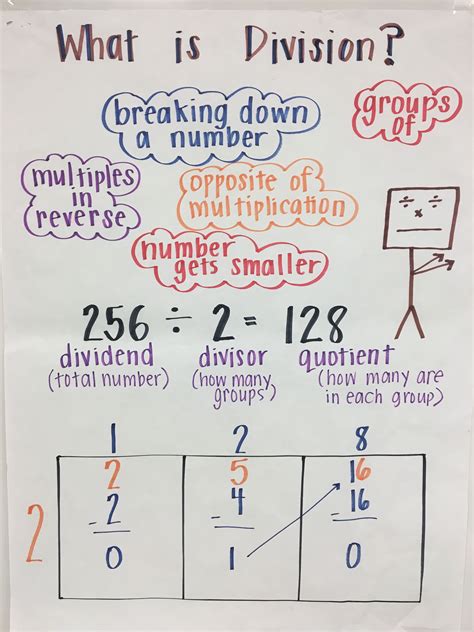 What is Division?
breaking down
a number
groups
of
multiples
in
reverse
opposite of
multiplication
number
gets smaller
÷ ÷
x
256 ÷ 2 = 128
dividend
(total number)
divisor
(how many
groups)
quotient
(how many are
in each group)
1 2 8
2 5 16
2
-2 -4 -16
0 1 0